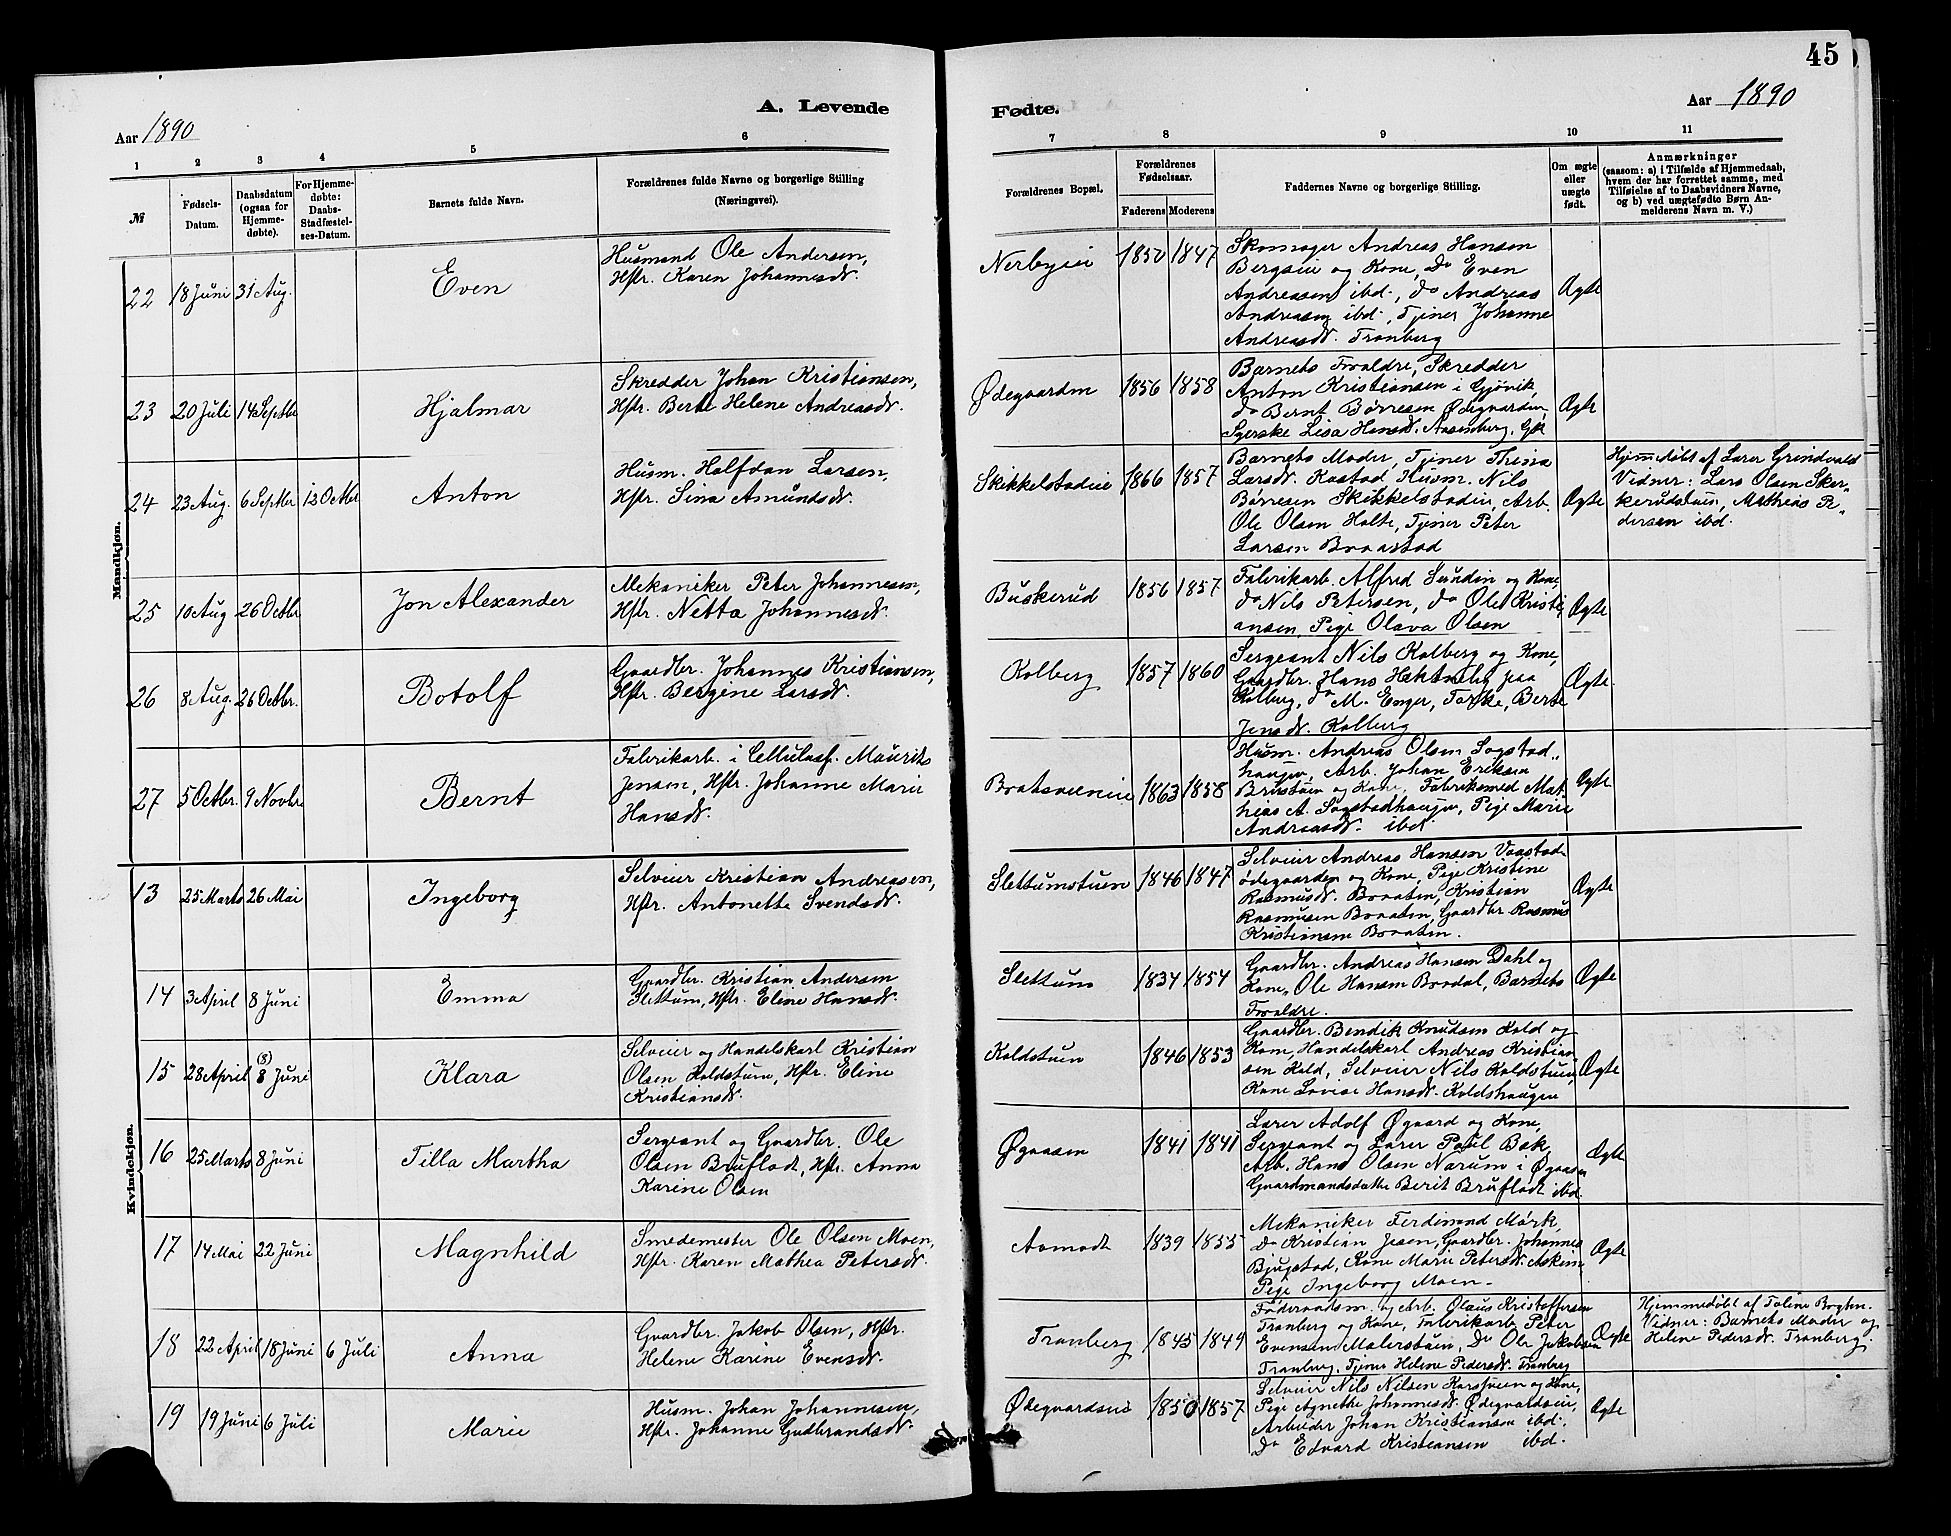 45
A. Levende Fødte.
Aar 1890
Aar 1890
1 2 3 4 5 6 7 8 9 10 11
№
Fødsels-Datum.
Daabsdatum (ogsaa for Hjemmedøbte).
For Hjemmedøbte: Daabs-Stadfæstelses-Datum.
Barnets fulde Navn.
Forældrenes fulde Navne og borgerlige Stilling (Næringsvei).
Forældrenes Bopæl.
Forældrenes Fødselsaar.
Faderens Moderens
Faddernes Navne og borgerlige Stilling.
Om ægte eller uægte født.
Anmærkninger
(saasom: a) i Tilfælde af Hjemmedaab,
hvem der har forrettet samme, med
Tilføielse af to Daabsvidners Navne,
og b) ved uægtefødte Børn Anmelderens Navn m. V.)
Mandkjøn.
22 18 Juni 31 Aug. Even
Husmand Ole Andersen,
Hstr. Karen Johannesdt.
Nerbyeie 1850 1847
Skomager Andreas Hansen
Bergseie og Kone, Do Even
Andreassen ibd., do Andreas
Andreasen ibd., Tjener Johanne
Andreasdt. Tranberg
Ægte
23 20 Juli 14 Septbr Hjalmar
Skredder Johan Kristiansen,
Hstr. Berte Helene Andreasdt.
Ødegaarden 1856 1858
Barnets Forældre, Skredder
Anton Kristiansen i Gjøvik,
do Bernt Børresen Ødegaarden,
Syerske Lisa Hansdt. Aasenberg, Gjk
Ægte
24 23 Aug. 6 Septbr 12 Octbr Anton
Husm. Halfdan Larsen,
Hstr. Sina Amundsdt.
Skikkelstadeie 1866 1857
Barnets Moder, Tjener Thina
Larsdt. Kastad, Husm. Nils
Børresen Skikkelstadeie, Arb.
Ole Olsen Holte, Tjener Peter
Larsen Braastad
Ægte
Hjemmedøbt af Lærer Grindvold
Vidner: Lars Olsen Skerkerudstuen, Mathias Pedersen ibd.
25 10 Aug 26 Octbr Jon Alexander
Mekaniker Peter Johannesen,
Hstr. Netta Johannesdt.
Buskerud 1856 1857
Fabrikarb. Alfred Sundin og Kone,
do Nils Petersen, do Ole Kristiansen, Pige Olava Olsen
Ægte
26 8 Aug. 26 Octbr. Botolf
Gaardbr. Johannes Kristiansen,
Hstr. Bergine Larsdt.
Kolberg 1857 1860
Sergeant Nils Kolberg og Kone,
Gaardbr. Hans paa
Kolberg, do M. Enger, Toske, Berte
Jensdt. Kolberg
Ægte.
27 5 Octbr. 9 Novbr Bernt
Fabrikarb. i Cellulosef. Maurits
Jensen, Hstr. Johanne Marie
Hansdt.
Bratsveneie 1863 1858
Husm. Andreas Olsen Sogstadhaugen, Arb. Johan Eriksen
og Kone, Fabriksmed Mathias A. Sogstadhaugen, Pige Marie
Andreasdt. ibd.
Ægte
Kvindekjøn.
13 25 Marts 26 Mai Ingeborg
Selveier Kristian Andreasen,
Hstr. Antonette Svendsdt.
Slettumstuen 1846 1847
Selveier Andreas Hansen Vaastadødegaarden og Kone, Pige Kristine
Rasmusdt. Braaten, Kristian
Rasmusen Braaten, Gaardbr. Rasmus
Kristiansen Braaten.
Ægte
14 3 April 8 Juni Emma
Gaardbr. Kristian Andersen
Slettum, Hstr. Eline Hansdt.
Slettum 1834 1854
Gaardbr. Andreas Hansen Dahl og
Kone, Ole Hansen Bradal, Barnets
Forældre.
Ægte
15 28 April (8) 8 Juni Klara
Selveier og Handelskarl Kristian
Olsen Koldstuen, Hstr. Eline
Kristiansdt.
Koldstuen 1846 1853
Gaardbr. Bendik Knudsen Kold og
Kone, Handelskarl Andreas Kristiansen Kold, Selveier Nils Koldstuen,
Kone Lovise Hansdt. Koldshaugen
Ægte
16 25 Marts 8 Juni Tilla Martha
Sergeant og Gaardbr. Ole
Olsen Bruflodt, Hstr. Anna
Karine Olsen
Øgaasen 1841 1841
Lærer Adolf Øgaard og Kone,
Sergeant og Lærer Paul Bæk,
Arb. Hans Olsen Narum i Øgaasen
Gaardmandsdatte Berit Bruflodt ibd.
Ægte
17 14 Mai 22 Juni Magnhild
Smedemester Ole Olsen Moen,
Hstr. Karen Mathea Petersdt.
Aamodt 1839 1855
Mekaniker Ferdinand Mørk,
Do Kristian Jesen, Gaardbr. Johannes
Bjugstad, Kone Marie Petersdt. Askim
Pige Ingeborg Moen.
Ægte
18 22 April 18 Juni 6 Juli Anna
Gaardbr. Jakob Olsen, Hstr.
Helene Karine Evensdt.
Tranberg 1845 1849
Føderaadsm. og Arb. Olaus Kristoffersen
Tranberg og Kone, Fabrikarb. Peter
Evensen Malerstuen, Do Ole Jakobsen
Tranberg, Tjener Helene Pedersdt. Tranberg
Ægte
Hjemmedøbt af Taline
Vidner: Barnets Moder og
Helene Pedersdt. Tranberg.
19 19 Juni 6 Juli Marie
Husm. Johan Johannesen,
Hstr. Johanne Gudbrandsdt.
Ødegaardseie 1850 1857
Selveier Nils Nilsen Karsveen og Kone,
Pige Agnethe Johannesdt. Ødegaardseie,
Arbeider Johan Kristiansen ibd.
Do Edvard Kristiansen ibd.
Ægte